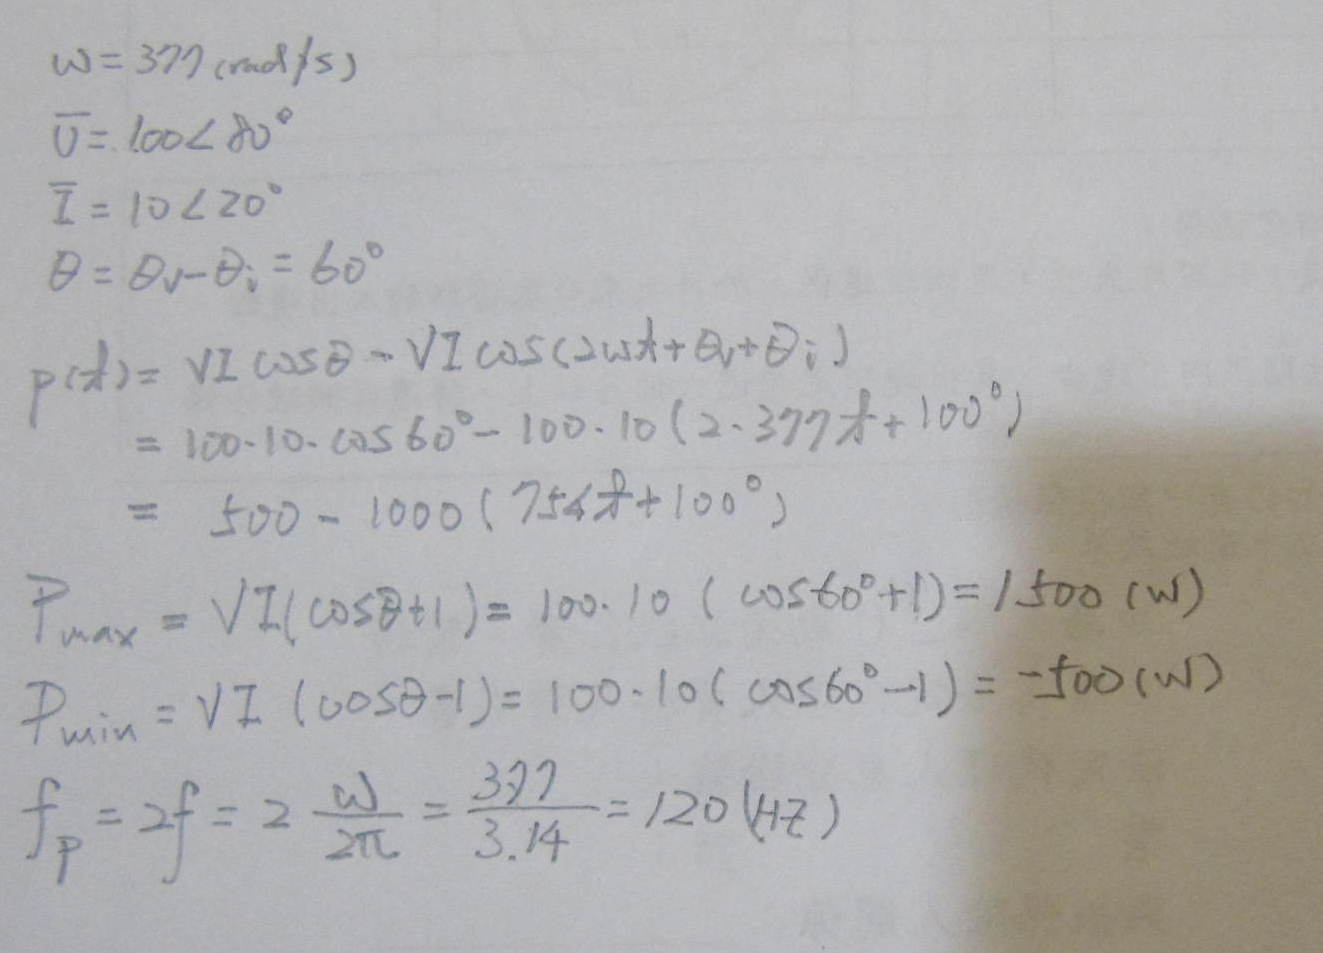 ω = 377 (rad/s)
U̅ = 100∠80°
I̅ = 10∠20°
θ = θv - θi = 60°
p(t) = VI cosθ - VI cos(2ωt + θv + θi)
= 100·10·cos60° - 100·10(2·377t + 100°)
= 500 - 1000(754t + 100°)
Pmax = VI(cosθ+1) = 100·10 (cos60°+1) = 1500 (W)
Pmin = VI (cosθ-1) = 100·10 (cos60°-1) = -500 (W)
fp = 2f = 2 ω/2π = 377/3.14 = 120 (HZ)